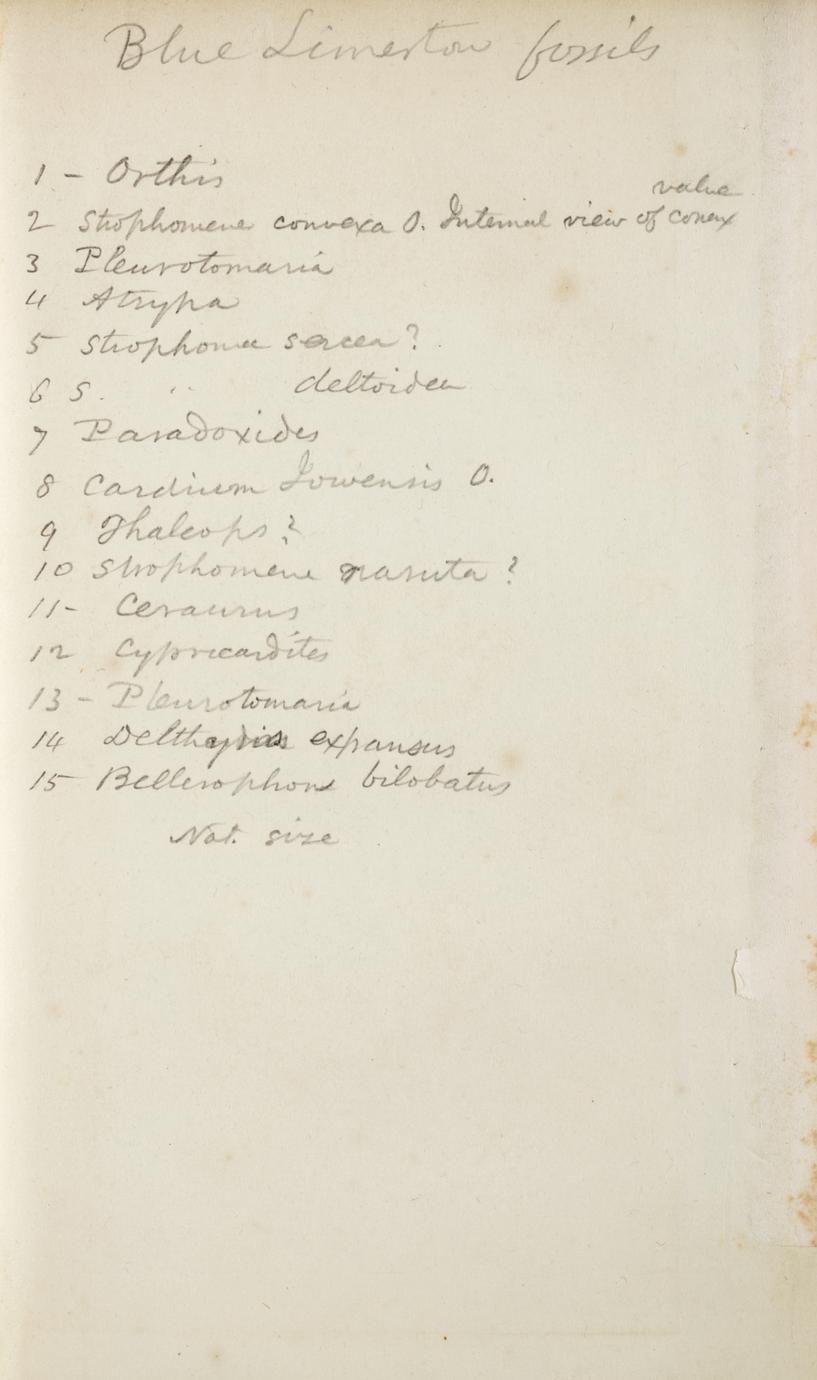 Blue Limeston fossils
1 - Orthis
value
2 Strophomene convexa O. Internal view of convx
3 Pleurotomaria
4 Atrypa
5 Strophomea sercea?
6 S. " deltoidea
7 Paradoxides
8 Cardium Iowensis O.
9 Thaleops?
10 Strophomene nasuta?
11- Ceraurus
12 Cypricardites
13 - Pleurotomaria
14 Delthyris expansus
15 Bellerophone bilobatus
Nat. size